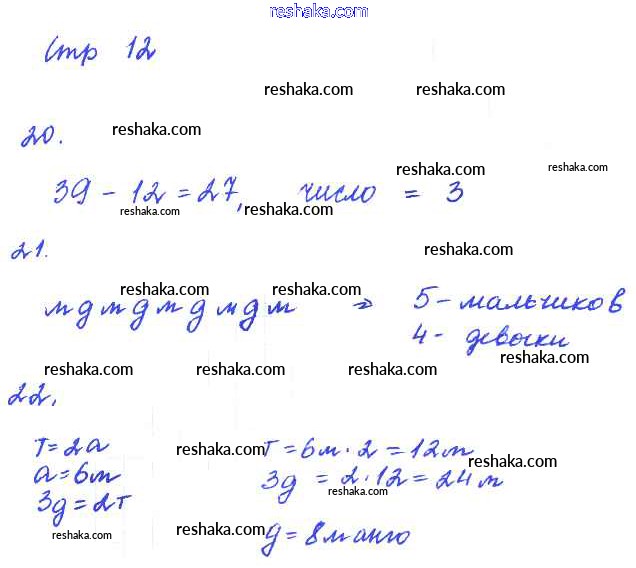 reshaka.com
Стр 12
reshaka.com reshaka.com
20. reshaka.com
reshaka.com reshaka.com
39 - 12 = 27, число = 3
reshaka.com reshaka.com
21. reshaka.com
reshaka.com reshaka.com
м д м д м д м д м => 5 - мальчиков
4 - девочки
reshaka.com
reshaka.com reshaka.com
22.
T = 2a reshaka.com T = 6м · 2 = 12м
reshaka.com
a = 6м 3g = 2 · 12 = 24м
reshaka.com
3g = 2T
reshaka.com reshaka.com g = 8 манго